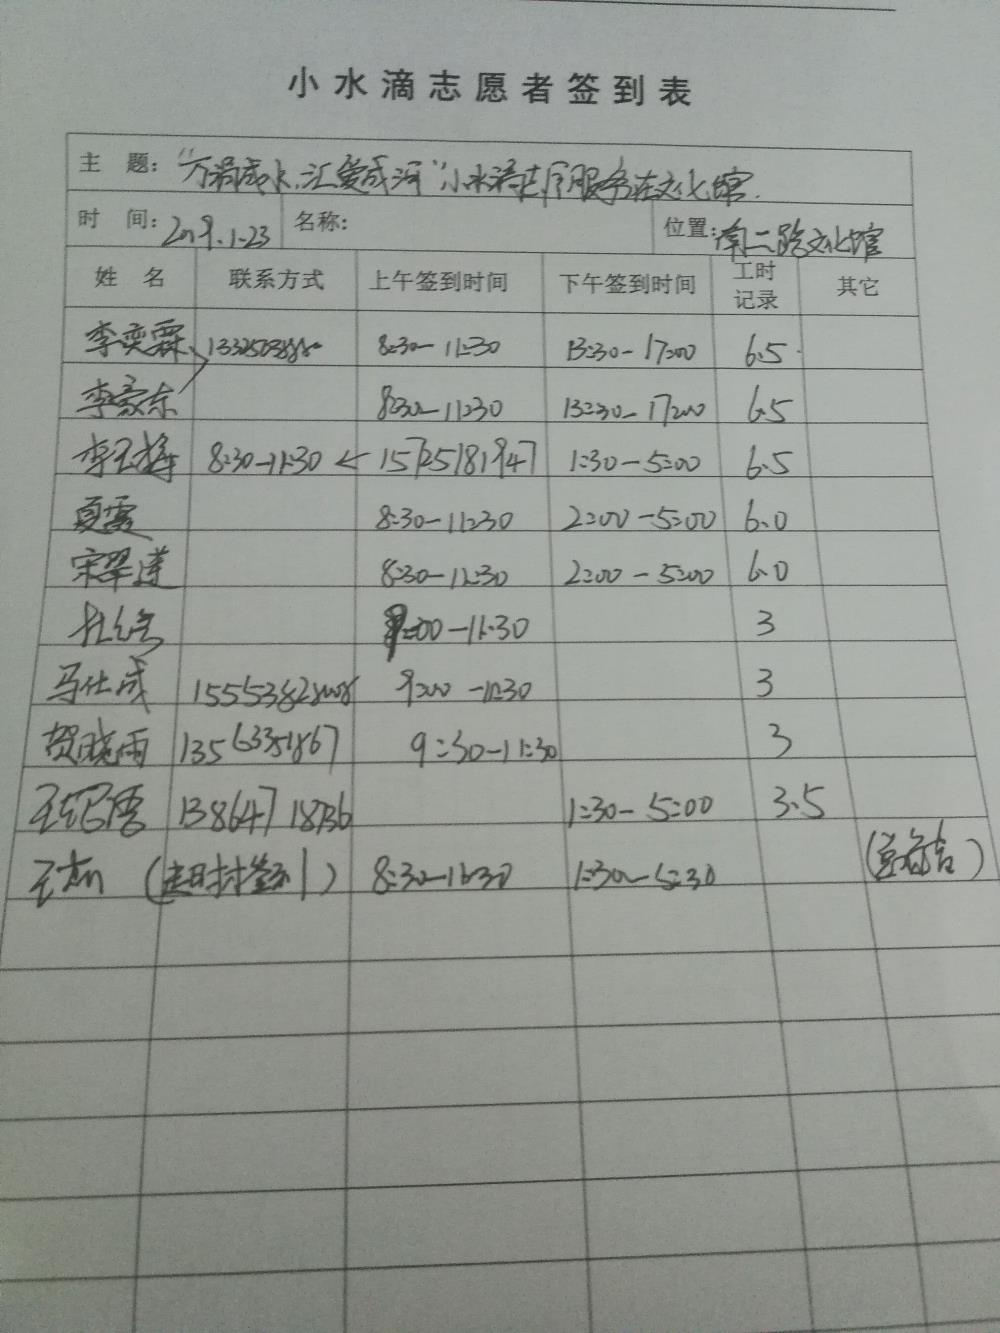 小水滴志愿者签到表
主 题："万涓成水,汇爱成河"小水滴志愿服务在文化馆.
时 间：2019.1.23 名称： 位置：南二路文化馆
姓 名 联系方式 上午签到时间 下午签到时间 工时记录 其它
李奕霖 8:30-11:30 13:30-17:00 6.5
李豪东 8:30-11:30 13:30-17:00 6.5
李玉 8:30-11:30 ← 15725181947 1:30-5:00 6.5
夏露 8:30-11:30 2:00-5:00 6.0
宋翠莲 8:30-11:30 2:00-5:00 6.0
9:00-11:30 3
马仕成 9:00-11:30 3
贺晓雨 13563351867 9:30-11:30 3
王绍 13864718736 1:30-5:00 3.5
王 8:30-11:30 1:30-5:30